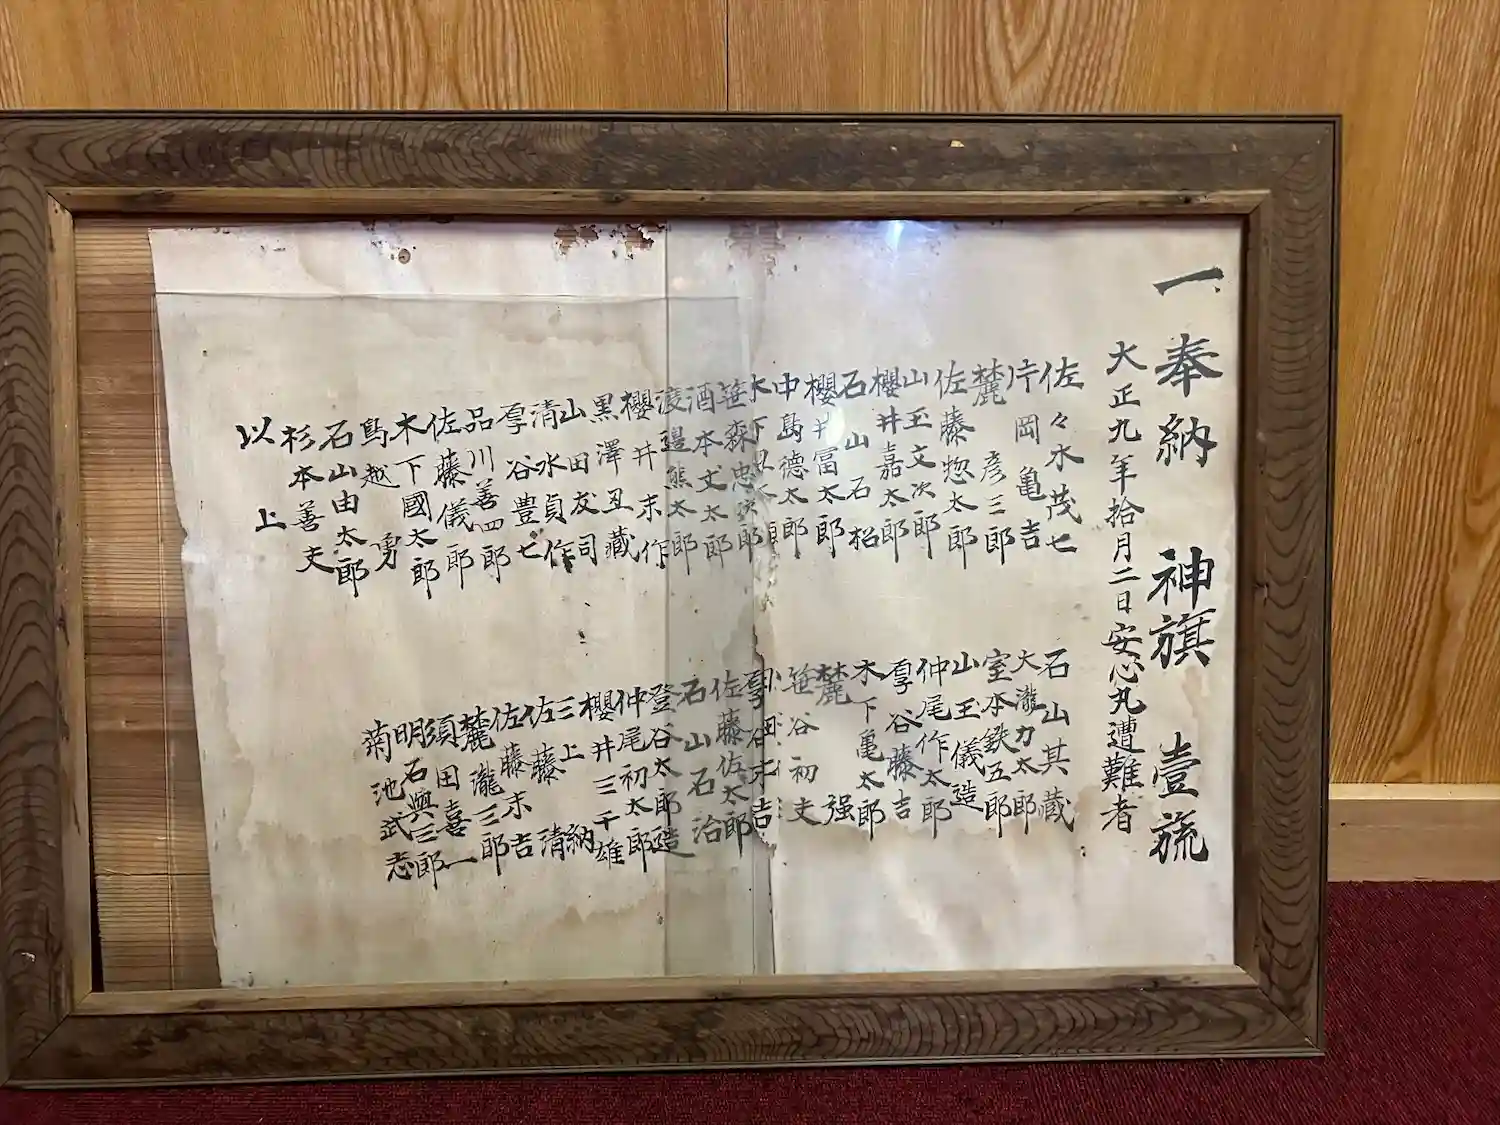 一奉納 神旗 壹旒
大正九年拾月二日安心丸遭難者
佐々木茂七
片岡亀吉
麓彦三郎
佐藤惣太郎
山玉文次郎
櫻井嘉太郎
石山石松
櫻井冨太郎
中島德太郎
木下
笹森忠次郎
酒本丈太郎
渡邉熊太郎
櫻井末作
黒澤丑藏
山田友司
清水貞作
厚谷豊七
品川善四郎
佐藤儀郎
木下國太郎
鳥越勇
石山由太郎
杉本善夫
石山其藏
大瀧力太郎
室本鉄五郎
山玉儀造
仲尾作太郎
厚谷藤吉
木下亀太郎
麓强
笹谷初夫
厚谷末吉
佐藤佐太郎
石山石治
登谷太郎造
仲尾初太郎
櫻井三千雄
三上納
佐藤清
佐藤末吉
麓瀧三郎
須田喜一
明石與三郎
菊池武志
以上